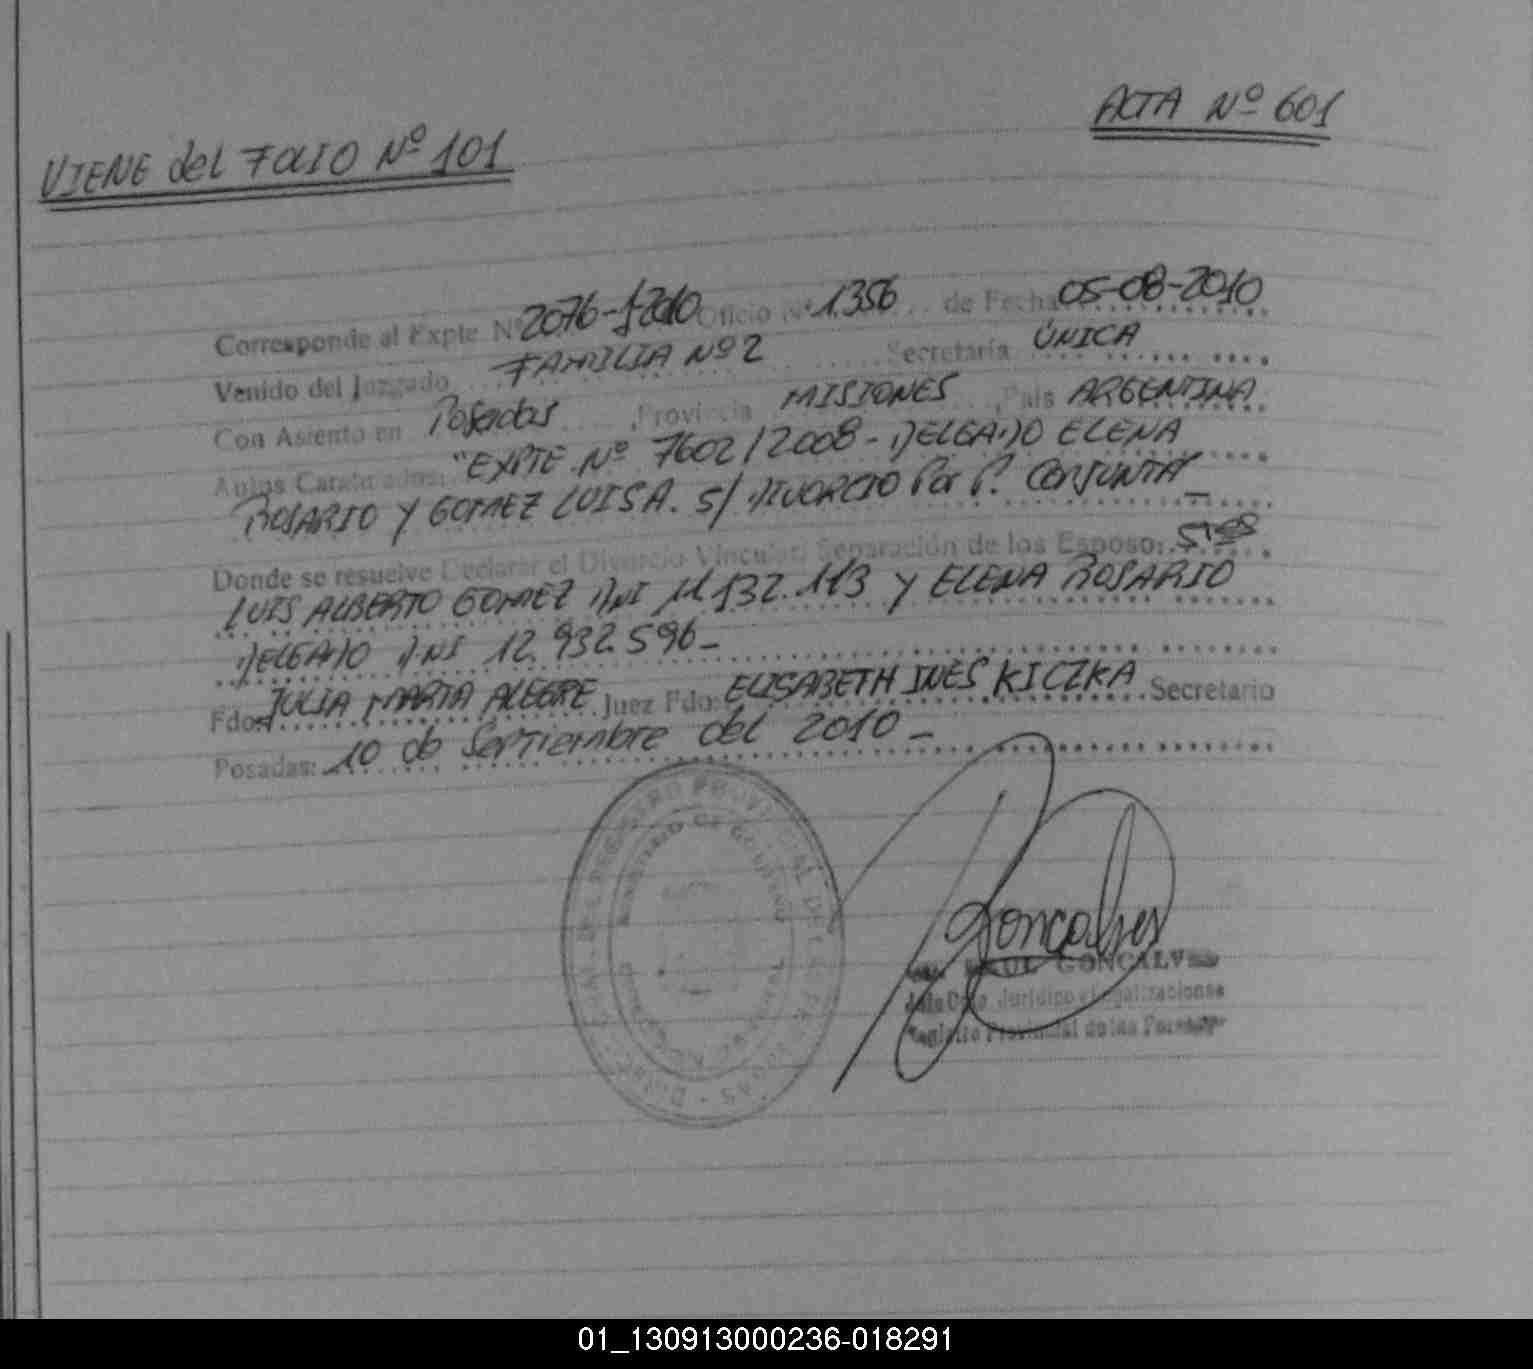 ACTA Nº 601
VIENE del FOLIO Nº 101
Corresponde al Expte Nº 2076-J-2010 Oficio Nº 1.356 de Fecha 05-08-2010
Venido del Juzgado FAMILIA Nº 2 Secretaría ÚNICA
Con Asiento en Posadas, Provincia MISIONES, País ARGENTINA
Autos Caratulados: "EXPTE Nº 7602/2008 - DELGADO ELENA
ROSARIO Y GOMEZ LUIS A. S/ DIVORCIO Por P. CONJUNTA"_
Donde se resuelve Declarar el Divorcio Vincular: Separación de los Esposo:
LUIS ALBERTO GOMEZ DNI 11.132.113 Y ELENA ROSARIO
DELGADO DNI 12.932.596_
Fdo: JULIA MARTA ALEGRE Juez Fdo: ELISABETH INES KICZKA Secretario
Posadas: 10 de Septiembre del 2010_
Goncalves
RAUL GONCALVES
Jurídico y Legalizaciones
Registro Provincial de las Personas
01_130913000236-018291